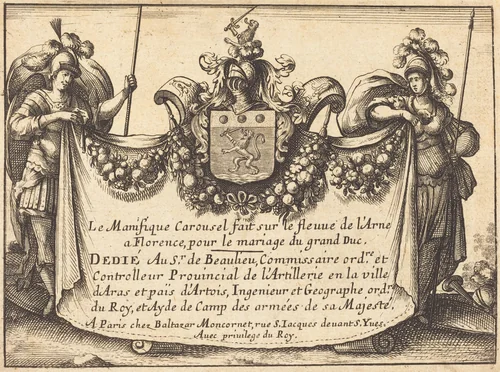 Le Manifique Carousel fait sur le fleuve de l'Arne
a Florence, pour le mariage du grand Duc.
DEDIÉ Au Sr. de Beaulieu, Commissaire ordre. et
Controlleur Provincial de l'Artillerie en la ville
d'Aras et païs d'Artois, Ingenieur et Geographe ordre.
du Roy, et Ayde de Camp des armées de sa Majesté.
A Paris chez Baltazar Moncornet, rue S. Jacques devant S. Yves.
Avec privilege du Roy.